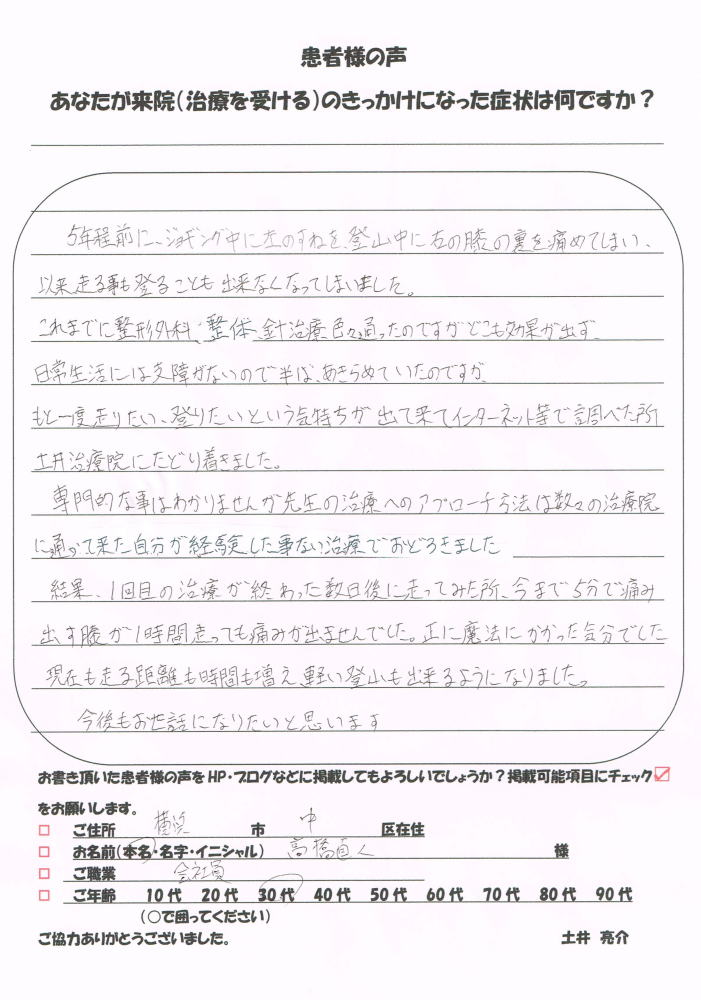 患者様の声
あなたが来院(治療を受ける)のきっかけになった症状は何ですか?
5年程前に、ジョギング中に左のすねを、登山中に右の膝の裏を痛めてしまい、
以来走る事も登ることも出来なくなってしまいました。
これまでに整形外科、整体、針治療色々通ったのですがどこも効果が出ず、
日常生活には支障がないので半ば、あきらめていたのですが、
もと一度走りたい、登りたいという気持ちが出て来てインターネット等で調べた所
土井治療院にたどり着きました。
専門的な事はわかりませんが先生の治療へのアプローチ方法は数々の治療院
に通って来た自分が経験した事ない治療でおどろきました
結果、1回目の治療が終わった数日後に走ってみた所、今まで5分で痛み
出す膝が1時間走っても痛みが出ませんでした。正に魔法にかかった気分でした
現在も走る距離も時間も増え、軽い登山も出来るようになりました。
今後もお世話になりたいと思います
お書き頂いた患者様の声をHP・ブログなどに掲載してもよろしいでしょうか?掲載可能項目にチェック
をお願いします。
ご住所 横浜 市 中 区在住
お名前(本名・名字・イニシャル) 高橋直人 様
ご職業 会社員
ご年齢 10代 20代 30代 40代 50代 60代 70代 80代 90代
(○で囲ってください)
ご協力ありがとうございました。 土井 亮介